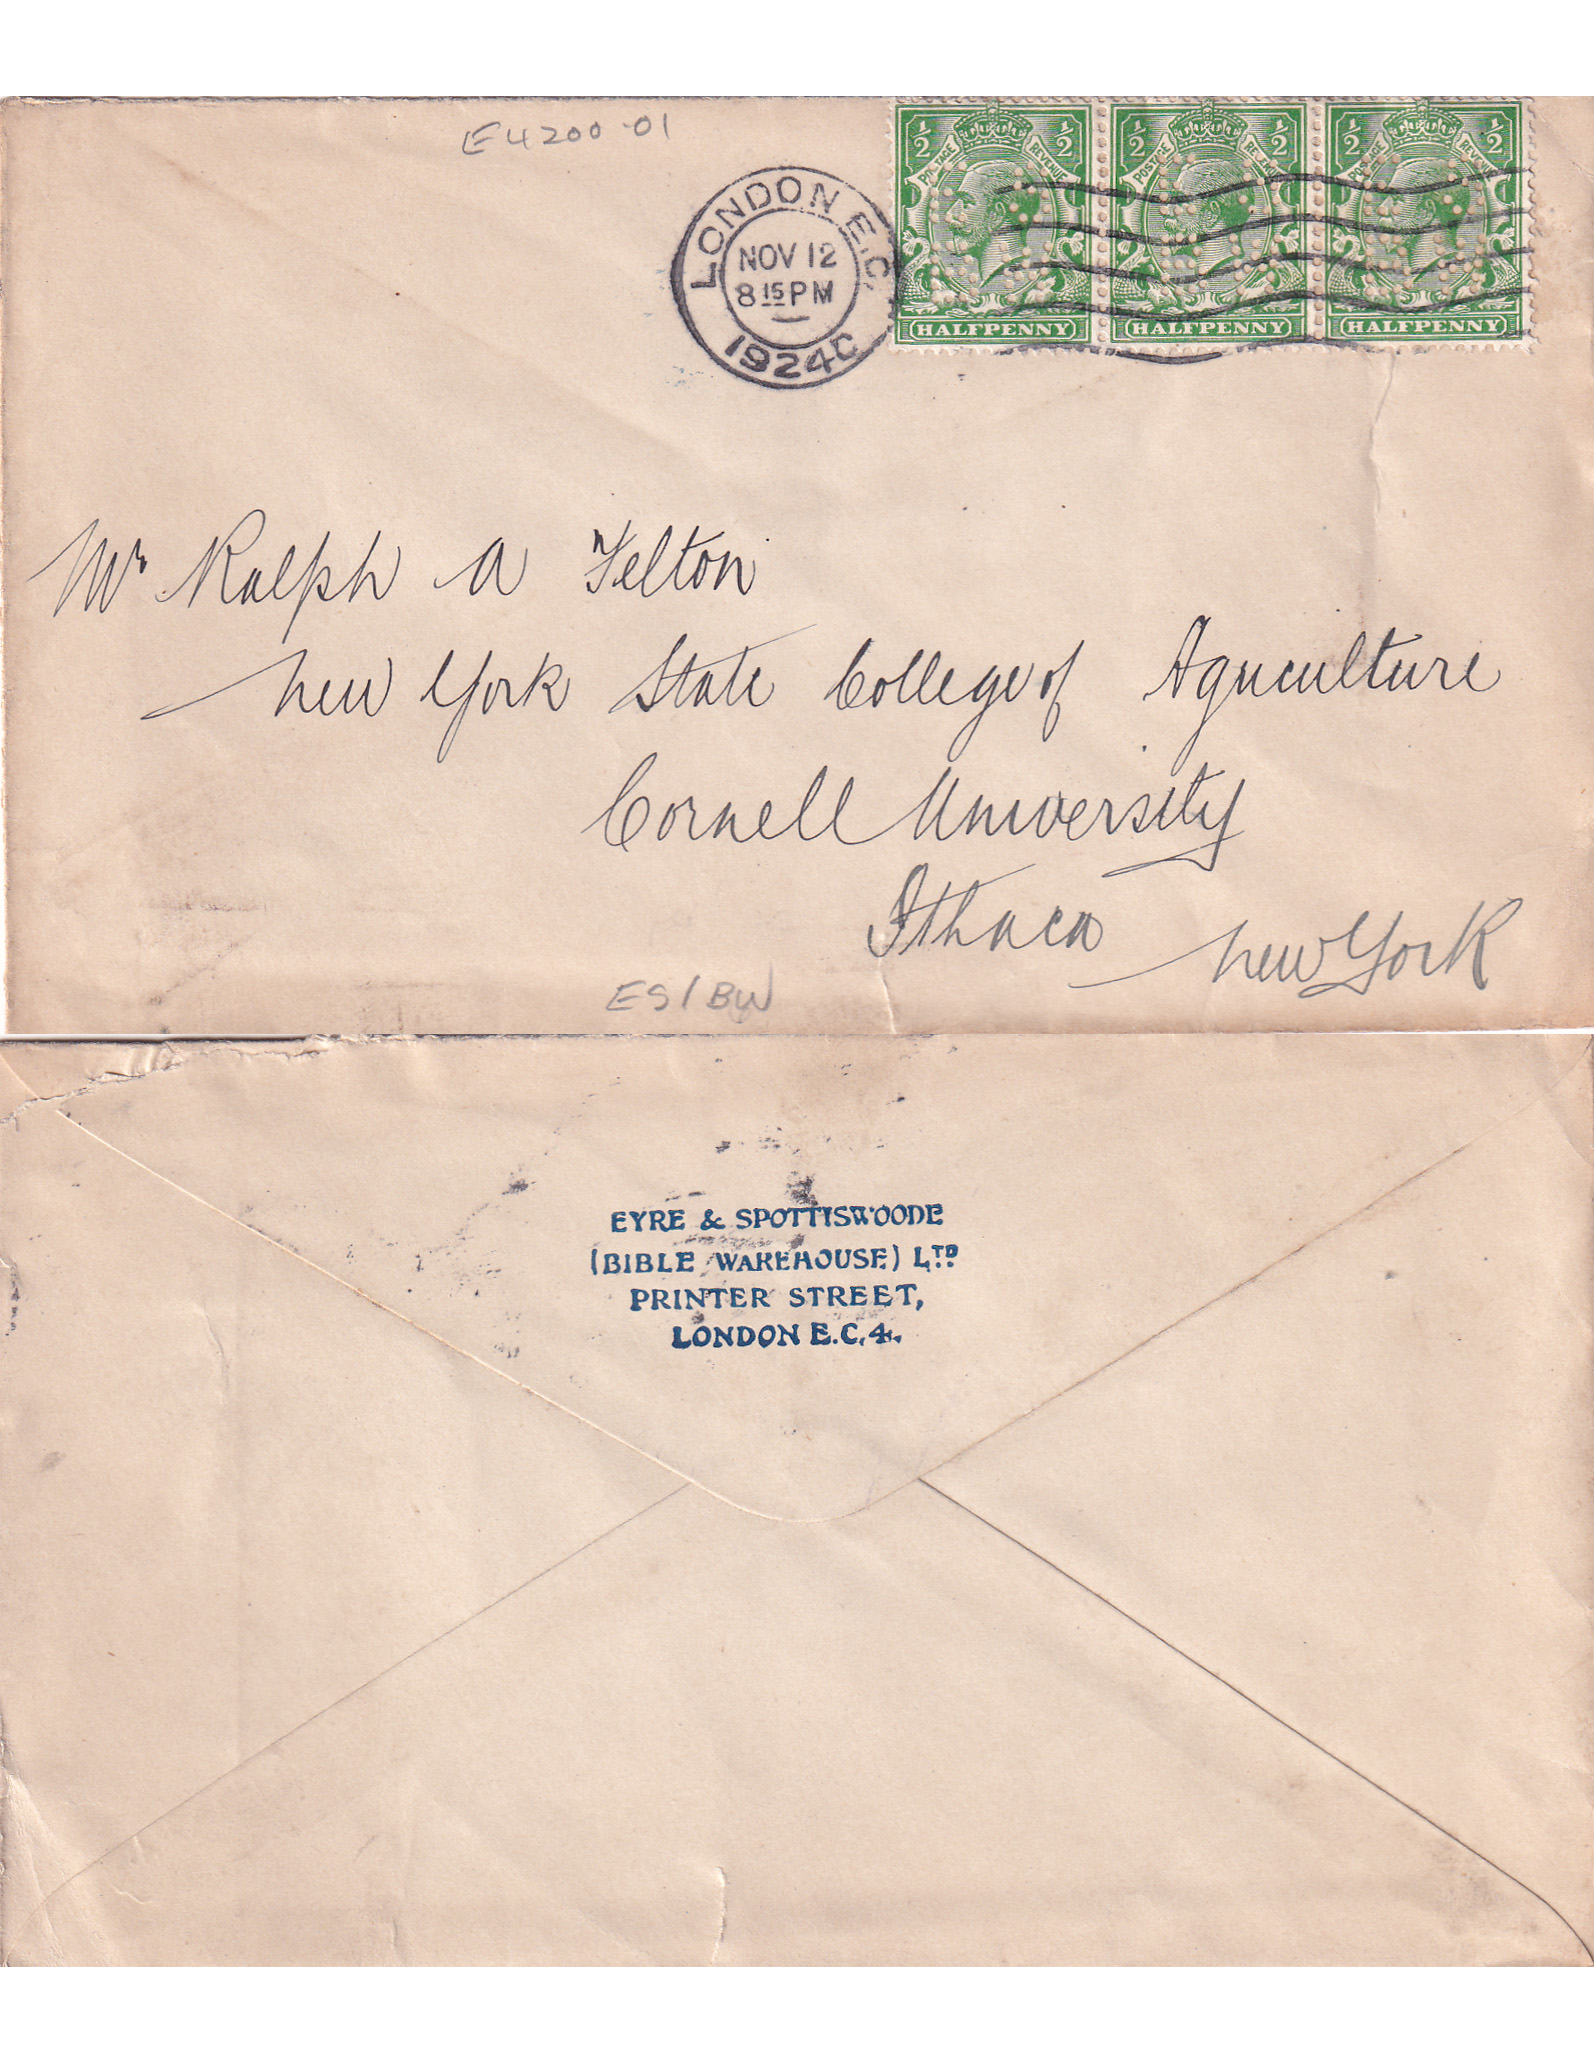 E4200.01
LONDON E.C.
NOV 12
8 15 PM
1924 C
½ ½ ½ ½ ½ ½
POSTAGE REVENUE POSTAGE REVENUE POSTAGE REVENUE
HALFPENNY HALFPENNY HALFPENNY
Mr Ralph A Felton
New York State College of Agriculture
Cornell University
Ithaca New York
ES/BW
EYRE & SPOTTISWOODE
(BIBLE WAREHOUSE) LTD
PRINTER STREET,
LONDON E.C.4.